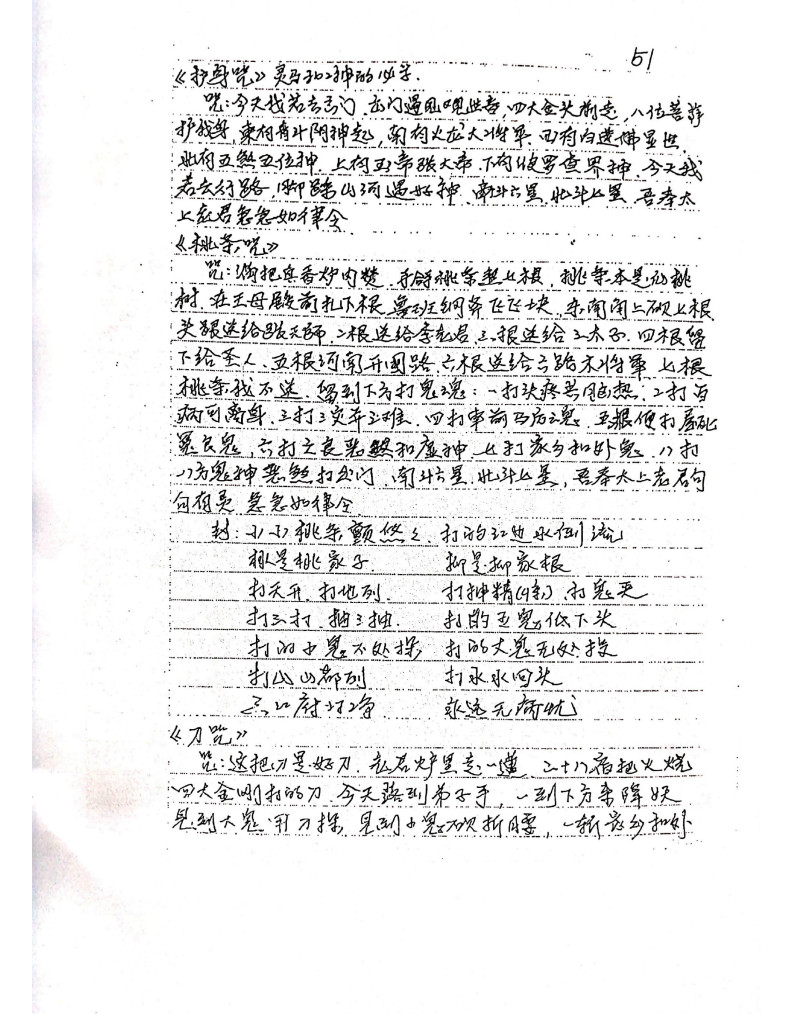 51
《护身咒》灵马和神的必学.
咒:今天我若去出门,出门遇见观世音,四大金头前走,八位菩萨
护我身,东有青斗阴神起,南有火龙大将军.西有白莲佛显世.
北有五煞五位神.上有玉帝张大帝.下有阎罗查界神.今天我
若去行路.脚踩山河遇好神.南斗六星.北斗七星.吾奉太
上老君急急如律令
《桃条咒》
咒:满把真香炉内焚.手拿桃条整七根.桃条本是仙桃
树.在王母殿前扎下根.鲁班钢斧飞飞快.东南角上砍七根
头根送给张天师.二根送给李老君.三根送给三太子.四根留
下给圣人.五根河南开国路.六根送给六路大将军.七根
桃条我不送.留到下方打鬼魂:一打头疼共脑热.二打百
病可离身.三打三灾并三难.四打车前马后魂.五根便打屈死
冤良鬼,六打亡良恶煞和虚神.七打家乡和外鬼.八打
八方鬼神恶煞打出门.南斗六星.北斗七星,吾奉太上老君句
句有灵 急急如律令
封:小小桃条颤悠悠.打的江边水倒流
桃是桃家子 柳是柳家根
打天开.打地列. 打神精(怪).打鬼灭
打三打.抽三抽. 打的五鬼低下头
打的小鬼不处採, 打的大鬼无处投
打山山都列 打水水回头
三江府打净 永远无病忧
《刀咒》
咒:这把刀是好刀.老君炉里走一遭.二十八宿把火烧
四大金刚打的刀.今天落到弟子手,一到下方来降妖
见到大鬼用刀採.见到小鬼砍折腰,一斩家乡和外